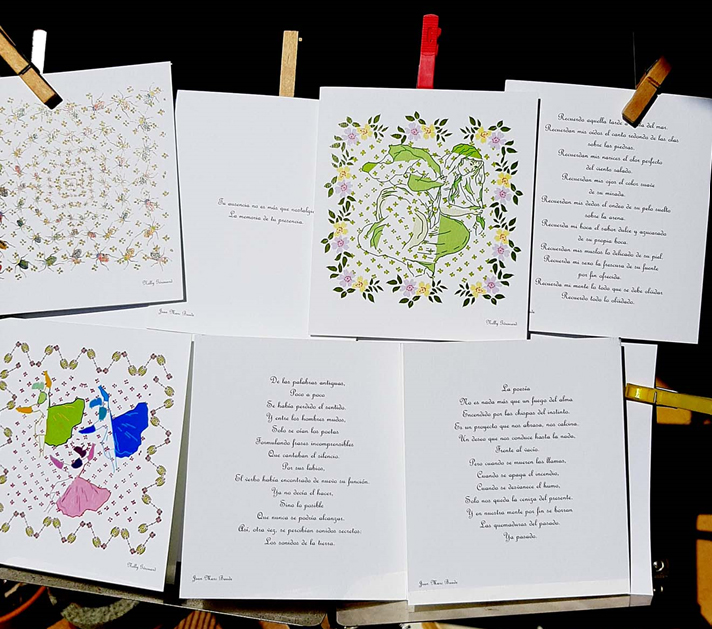 Nelly Gérannart
Tu ausencia no es más que nostalgia
La memoria de tu presencia.
Jean Marc Buede
Nelly Gérannart
Recuerdo aquella tarde a del mar.
Recuerdan mis oídos el canto redondo de las olas
sobre las piedras.
Recuerdan mis narices el olor perfecto
del viento salado.
Recuerdan mis ojos el color suave
de su mirada.
Recuerdan mis dedos el ondeo de su pelo suelto
sobre la arena.
Recuerda mi boca el sabor dulce y azucarado
de su propia boca.
Recuerdan mis muslos lo delicado de su piel.
Recuerda mi sexo la frescura de su fuente
por fin ofrecida.
Recuerda mi mente lo todo que se debe olvidar
Recuerdo todo lo olvidado.
Nelly Gérannart
De las palabras antiguas,
Poco a poco
Se había perdido el sentido.
Y entre los hombres mudos,
Solo se oían los poetas
Formulando frases incomprensibles
Que cantaban el silencio.
Por sus labios,
El verbo había encontrado de nuevo su función.
Ya no decía el hacer,
Sino lo posible
Que nunca se podría alcanzar.
Así, otra vez, se percibían sonidos secretos:
Los sonidos de la tierra.
Jean Marc Buede
La poesía
No es nada más que un fuego del alma
Encendido por las chispas del instinto.
Es un proyecto que nos abrasa, nos calcina.
Un deseo que nos conduce hasta la nada,
Frente al vacío.
Pero cuando se mueren las llamas,
Cuando se apaga el incendio,
Cuando se desvanece el humo,
Solo nos queda la ceniza del presente.
Y en nuestra mente por fin se borran
Las quemaduras del pasado.
Ya pasado.
Jean Marc Buede